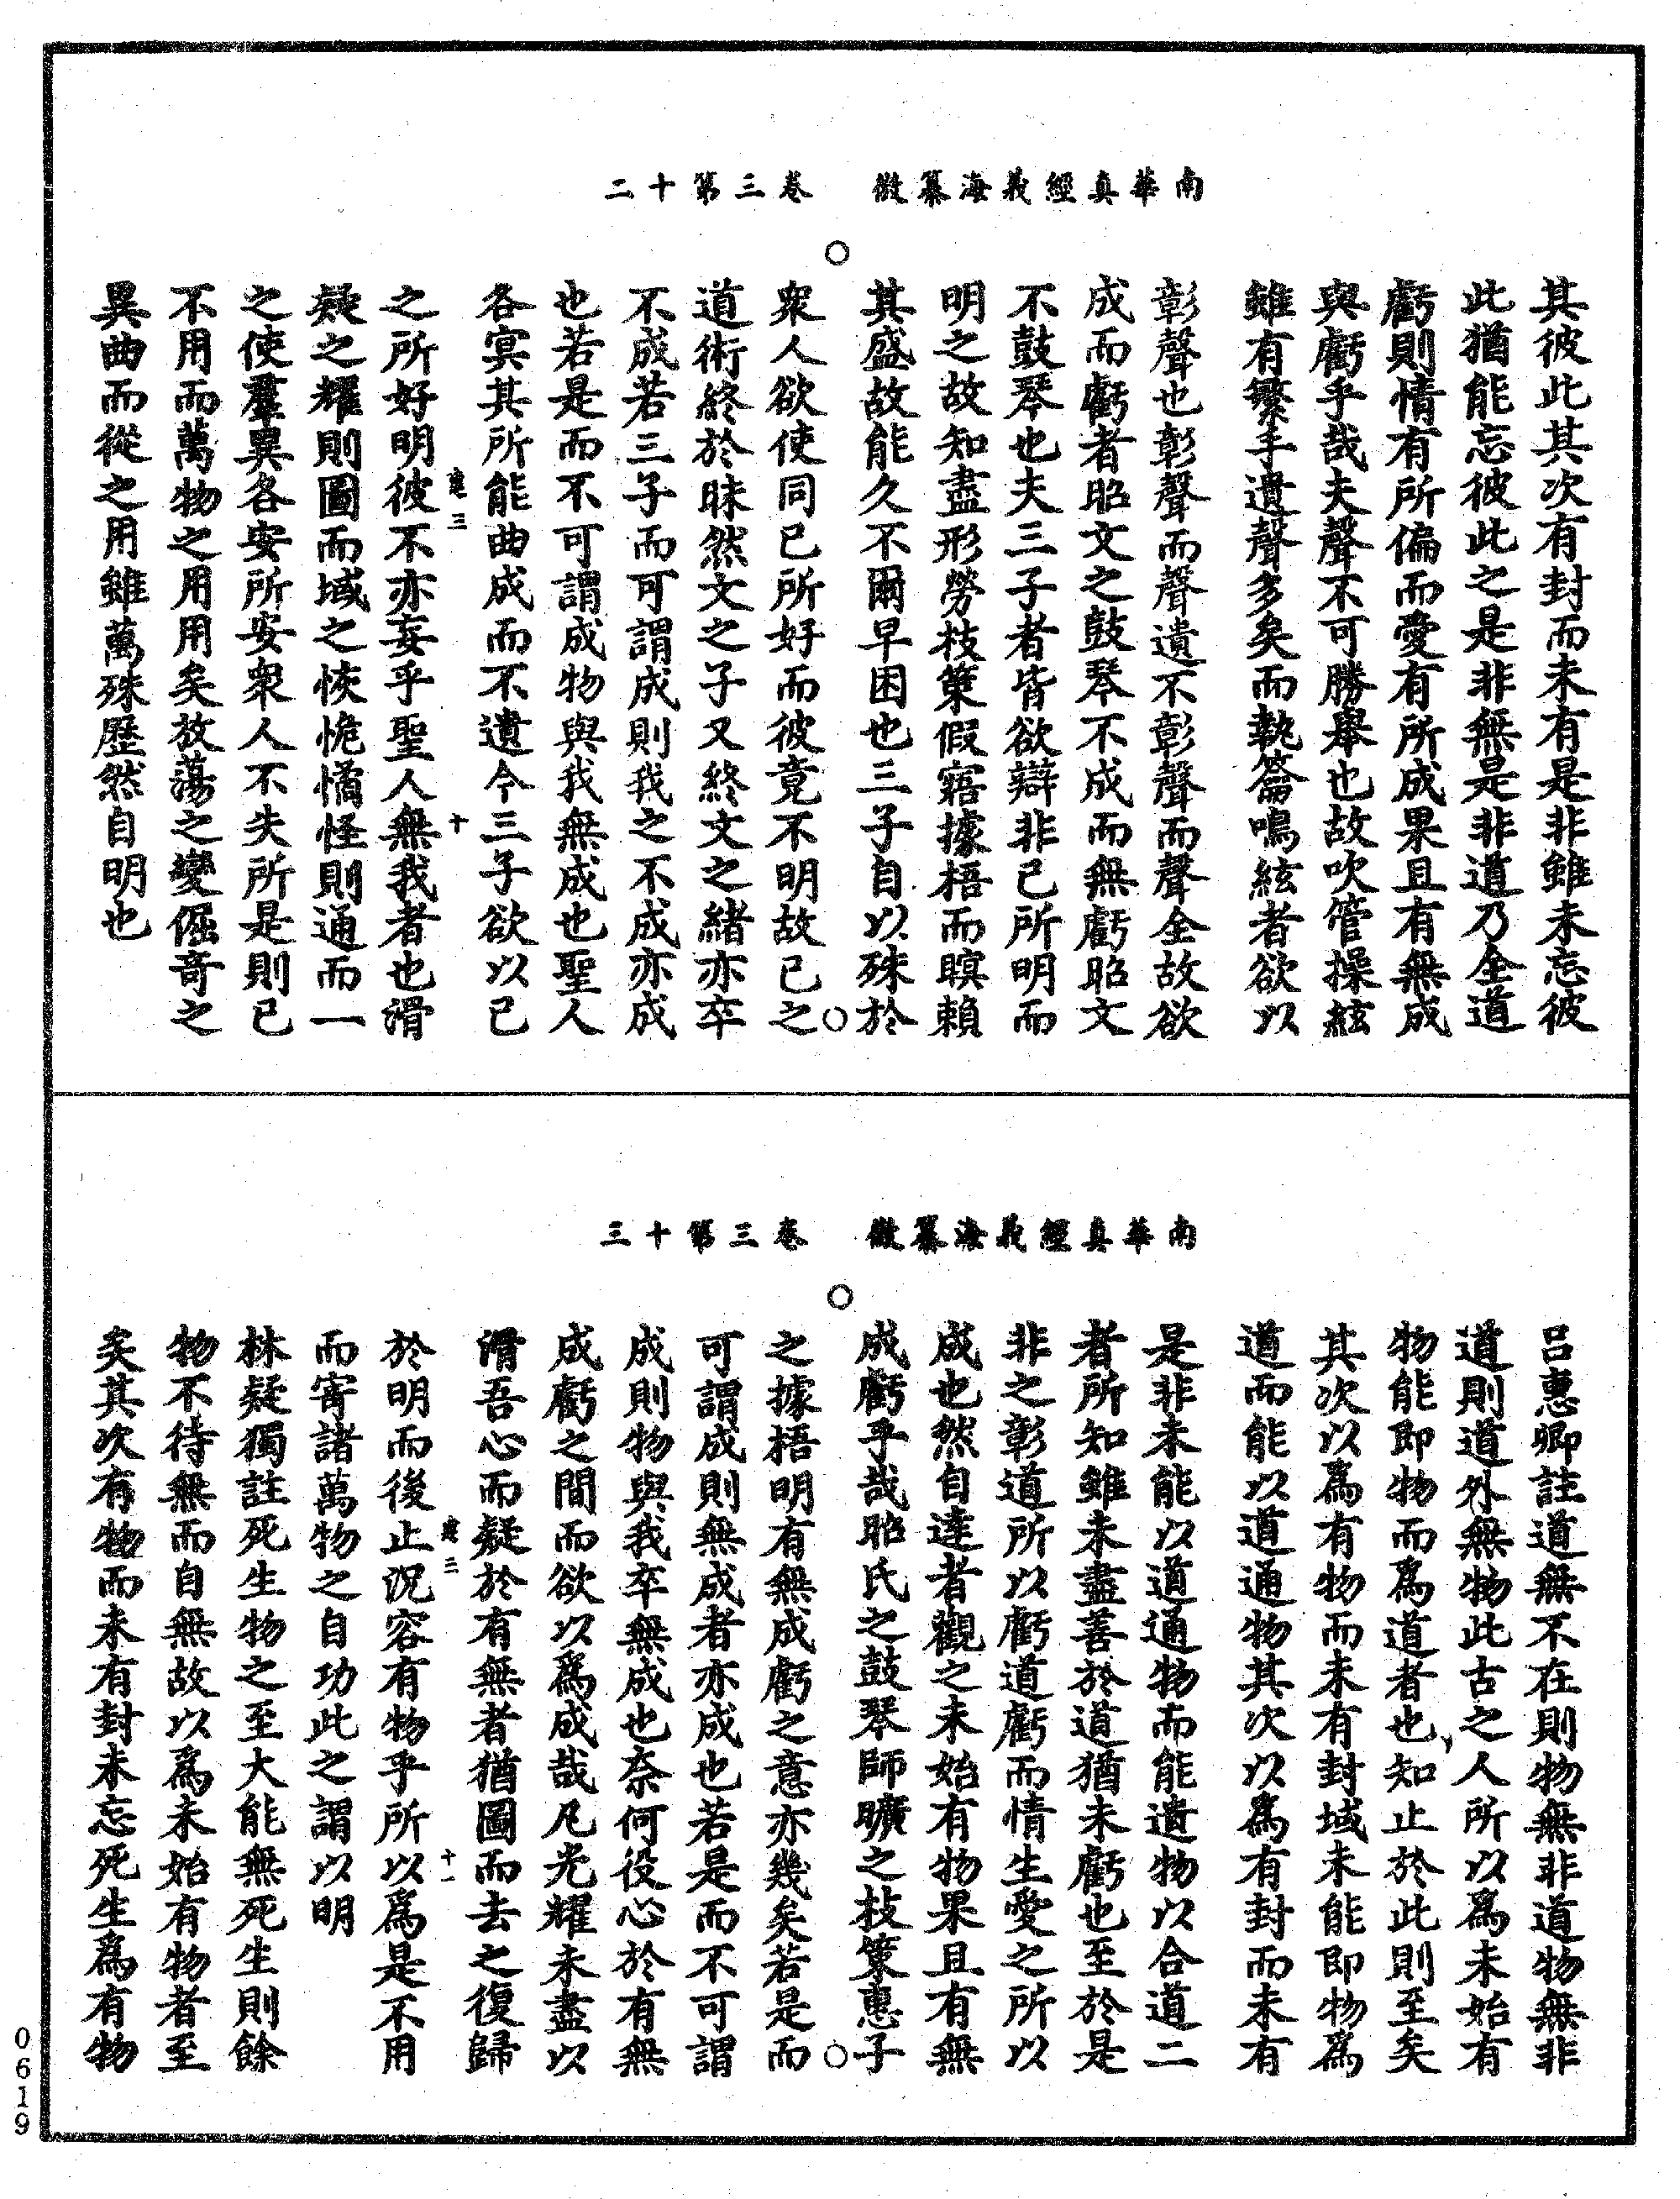 南華真經義海纂微　卷三第十二
其彼此其次有封而未有是非雖未忘彼
此猶能忘彼此之是非無是非道乃全道
虧則情有所偏而愛有所成果且有無成
與虧乎哉夫聲不可勝舉也故吹管操絃
雖有繁手遺聲多矣而執籥鳴絃者欲以
彰聲也彰聲而聲遺不彰聲而聲全故欲
成而虧者昭文之鼓琴不成而無虧昭文
不鼓琴也夫三子者皆欲辯非己所明而
明之故知盡形勞枝策假寤據梧而瞑賴
其盛故能久不爾早困也三子自以殊於
衆人欲使同己所好而彼竟不明故己之
道術終於昧然文之子又終文之緒亦卒
不成若三子而可謂成則我之不成亦成
也若是而不可謂成物與我無成也聖人
各冥其所能曲成而不遺今三子欲以己
之所好明彼不亦妄乎聖人無我者也滑
疑之耀則圖而域之恢恑憰怪則通而一
之使羣異各安所安衆人不失所是則己
不用而萬物之用用矣放蕩之變倔奇之
異曲而從之用雖萬殊歷然自明也
三
十
南華真經義海纂微　卷三第十三
呂惠卿註道無不在則物無非道物無非
道則道外無物此古之人所以爲未始有
物能即物而爲道者也知止於此則至矣
其次以爲有物而未有封域未能即物爲
道而能以道通物其次以爲有封而未有
是非未能以道通物而能遺物以合道二
者所知雖未盡善於道猶未虧也至於是
非之彰道所以虧道虧而情生愛之所以
成也然自達者觀之未始有物果且有無
成虧乎哉昭氏之鼓琴師曠之枝策惠子
之據梧明有無成虧之意亦幾矣若是而
可謂成則無成者亦成也若是而不可謂
成則物與我卒無成也奈何役心於有無
成虧之間而欲以爲成哉凡光耀未盡以
滑吾心而疑於有無者猶圖而去之復歸
於明而後止況容有物乎所以爲是不用
而寄諸萬物之自功此之謂以明
林疑獨註死生物之至大能無死生則餘
物不待無而自無故以爲未始有物者至
矣其次有物而未有封未忘死生爲有物
三
十一
0619